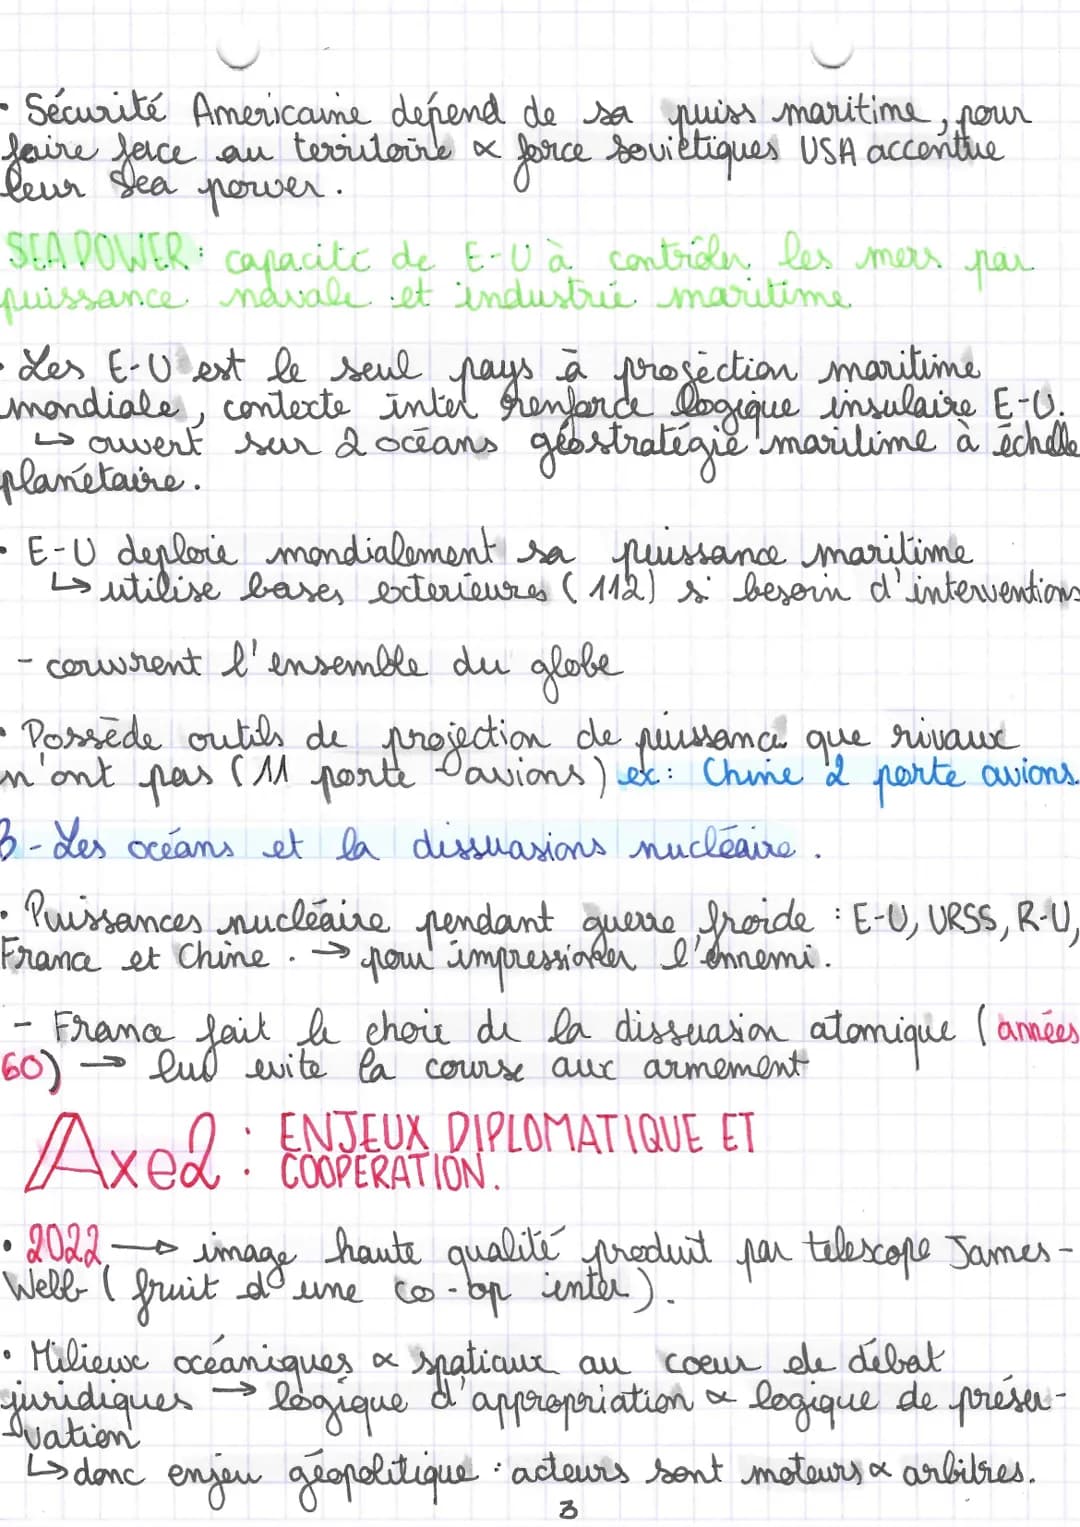 • Sécurité Americaine dépend de sa puiss maritime, pour
faire face au territoire & force soviétiques USA accentue
leur Sea power.
SEA POWER : capacité de E-U à contrôler les mers par
puissance navale et industrie maritime
• Les E-U est le seul pays à projection maritime
mondiale, contexte inter renforce logique insulaire E-U.
↳ ouvert sur 2 océans géostratégie maritime à échelle
planétaire.
• E-U deploie mondialement sa puissance maritime
↳ utilise bases exterieures (112) si besoin d'interventions
- couvrent l'ensemble du globe
• Possède outils de projection de puissance que rivaux
n'ont pas (11 porte-avions) ex: Chine 2 porte avions.
B - Les océans et la dissuasions nucléaire.
• Puissances nucléaire pendant guerre froide : E-U, URSS, R-U,
France et Chine. → pour impressioner l'énnemi.
- France fait le choix de la dissuasion atomique (années
60) → evite la course aux armement
Axe 2 : ENJEUX DIPLOMATIQUE ET
COOPERATION.
• 2022 → image haute qualité produit par telescope James-
Webb (fruit d'une co-op inter).
• Milieux océaniques & spatiaux au coeur de débat
juridiques → logique d'appropriation & logique de préser-
vation
↳ donc enjeu géopolitique : acteurs sont moteurs & arbitres.
3